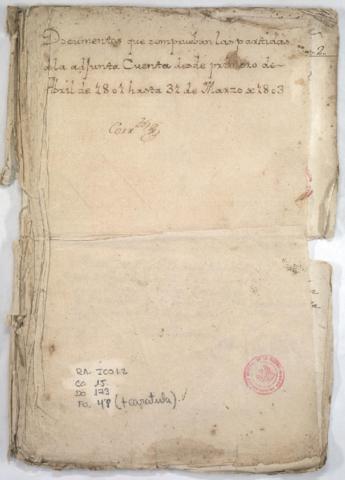 Documentos que comprueban las partidas
de la adjunta Cuenta desde primero de
Abril de 1801 hasta 31 de Marzo de 1803
2.
CO. 15
DO 173
Fo. 48 (+ caratula).